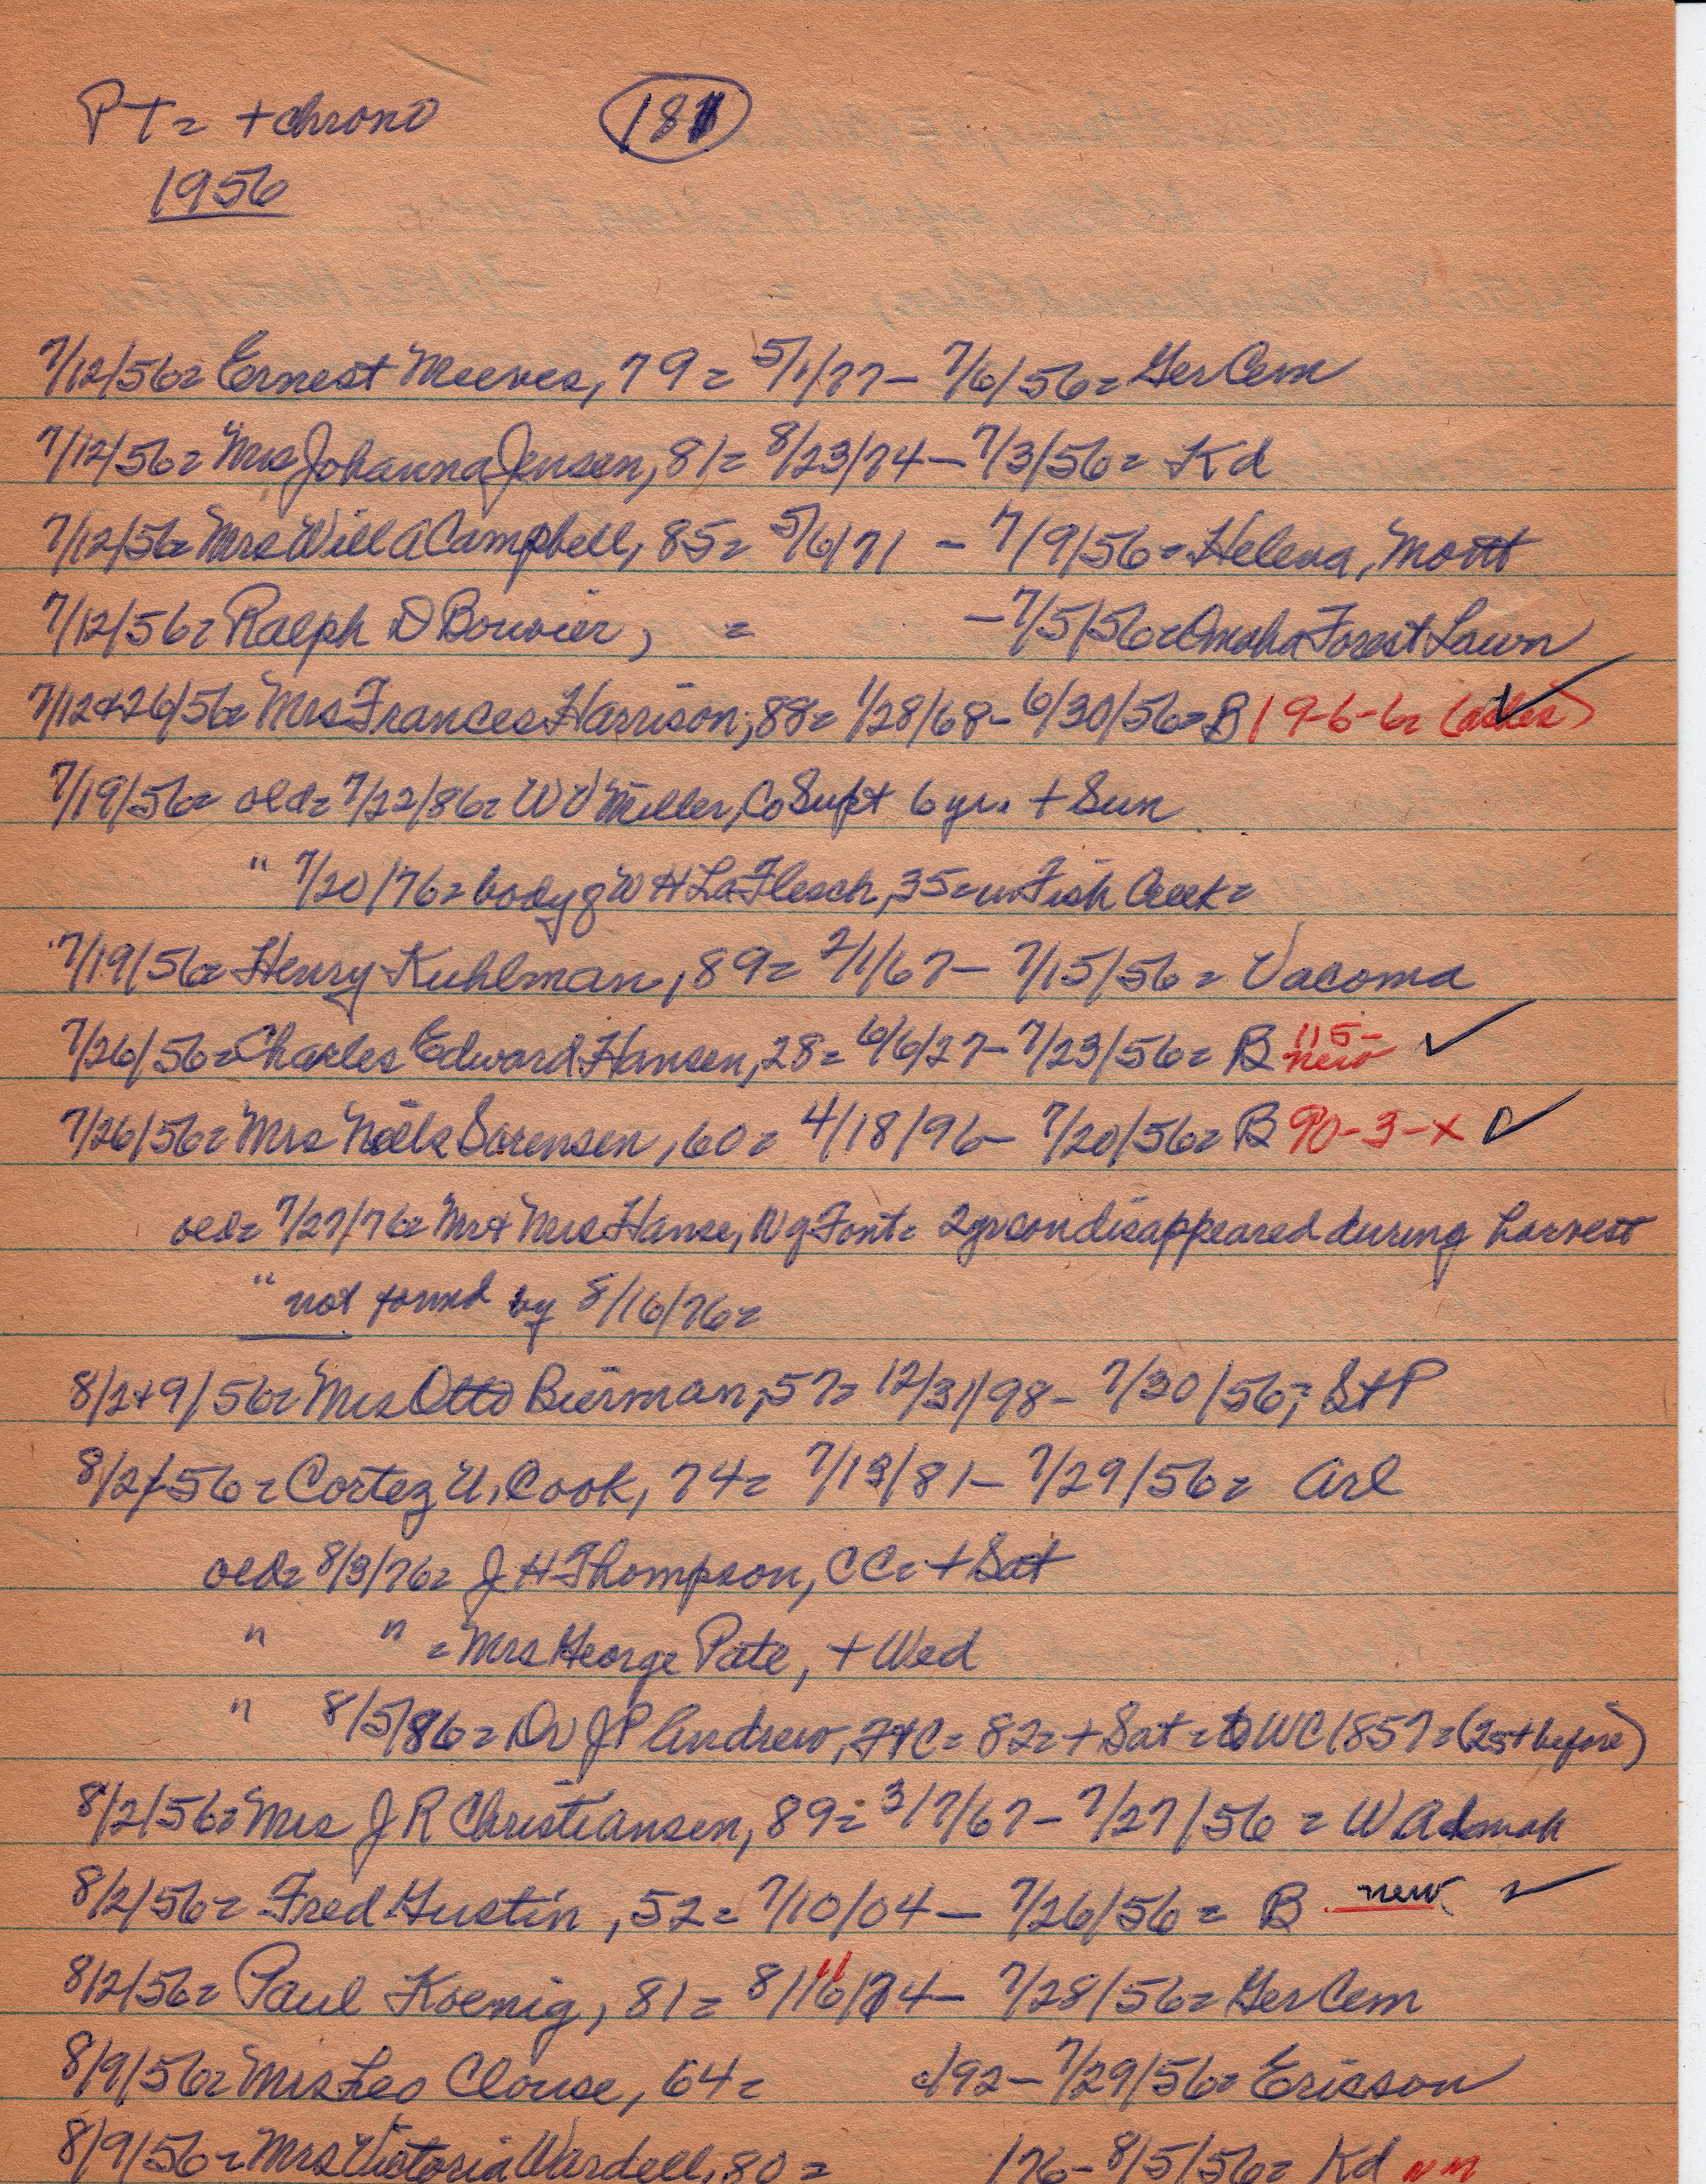 PT = + chrono 181
1956
7/12/56 = Ernest Meeves, 79 = 5/1/77 - 7/6/56 = Ger Cem
7/12/56 = Mrs Johanna Jensen, 81 = 8/23/74 - 7/3/56 = Kd
7/12/56 = Mrs Will A Campbell, 85 = 5/6/71 - 7/9/56 = Helena, Mont
7/12/56 = Ralph D Bouvier, = - 7/5/56 = Omaha Forest Lawn
7/12+26/56 = Mrs Frances Harrison, 88 = 1/28/68 - 6/30/56 = B 19-6-6 = (ashes) ✓
7/19/56 = old = 7/22/86 = W V Miller, Co Supt 6 yr. + Sun
" 7/20/76 = body of W H La Flesch, 35 = in Fish Creek =
7/19/56 = Henry Kuhlman, 89 = 2/1/67 - 7/15/56 = Vacoma
7/26/56 = Charles Edward Hansen, 28 = 6/6/27 - 7/23/56 = B 115- new ✓
7/26/56 = Mrs Niels Sorensen, 60 = 4/18/96 - 7/20/56 = B 90-3-x ✓
old = 7/27/76 = Mr + Mrs Hanse, N of Font = 2 yr son disappeared during harvest
" not found by 8/16/76 =
8/2+9/56 = Mrs Otto Bierman, 57 = 12/31/98 - 7/30/56 = St P
8/2/56 = Cortez U. Cook, 74 = 7/13/81 - 7/29/56 = Arl
old = 8/3/76 = J H Thompson, CC = + Sat
" " = Mrs George Pate, + Wed
" 8/5/86 = Dr J P Andrew, FtC = 82 = + Sat = to WC 1857 = (25+ before)
8/2/56 = Mrs J R Christiansen, 89 = 3/7/67 - 7/27/56 = W Admah
8/2/56 = Fred Gustin, 52 = 7/10/04 - 7/26/56 = B new ✓
8/2/56 = Paul Koenig, 81 = 8/16/74 - 7/28/56 = Ger Cem
8/9/56 = Mrs Leo Clouse, 64 = c/92 - 7/29/56 = Ericson
8/9/56 = Mrs Victoria Wardell, 80 = /76 - 8/5/56 = Kd nm